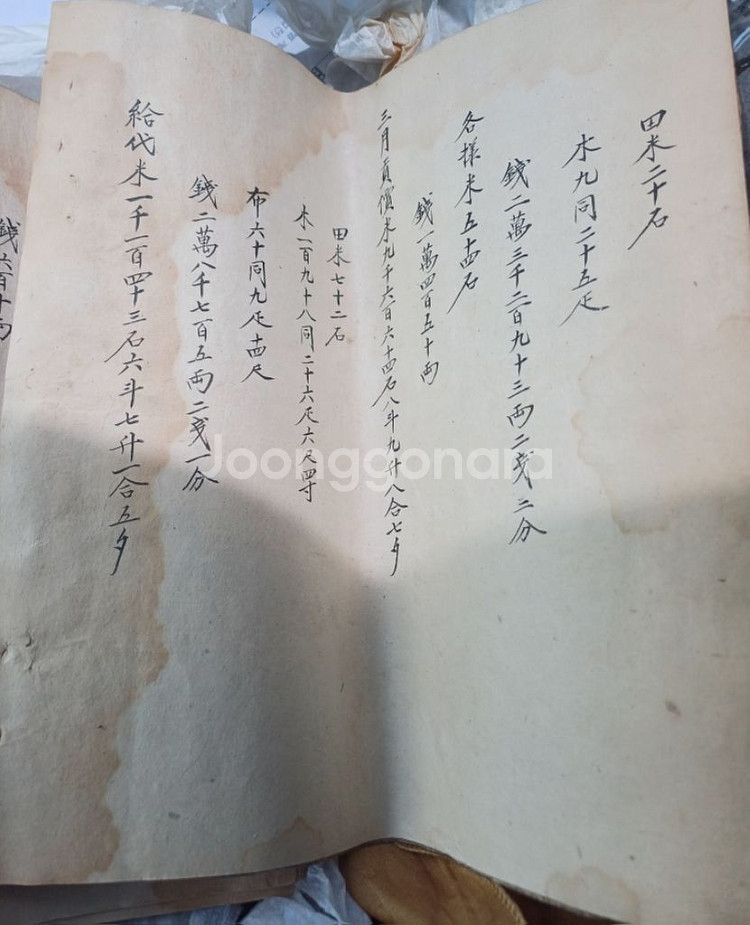 田米二十石
木九同二十五疋
錢二萬三千二百九十三兩二戔二分
各樣米五十四石
錢一萬四百五十兩
三月貢價米九千六百六十四石八斗九升八合七夕
田米七十二石
木一百九十八同二十六疋六尺四寸
布六十同九疋十四尺
錢二萬八千七百五兩二戔一分
給代米一千一百四十三石六斗七升一合五夕
錢六百十兩
Joonggonara